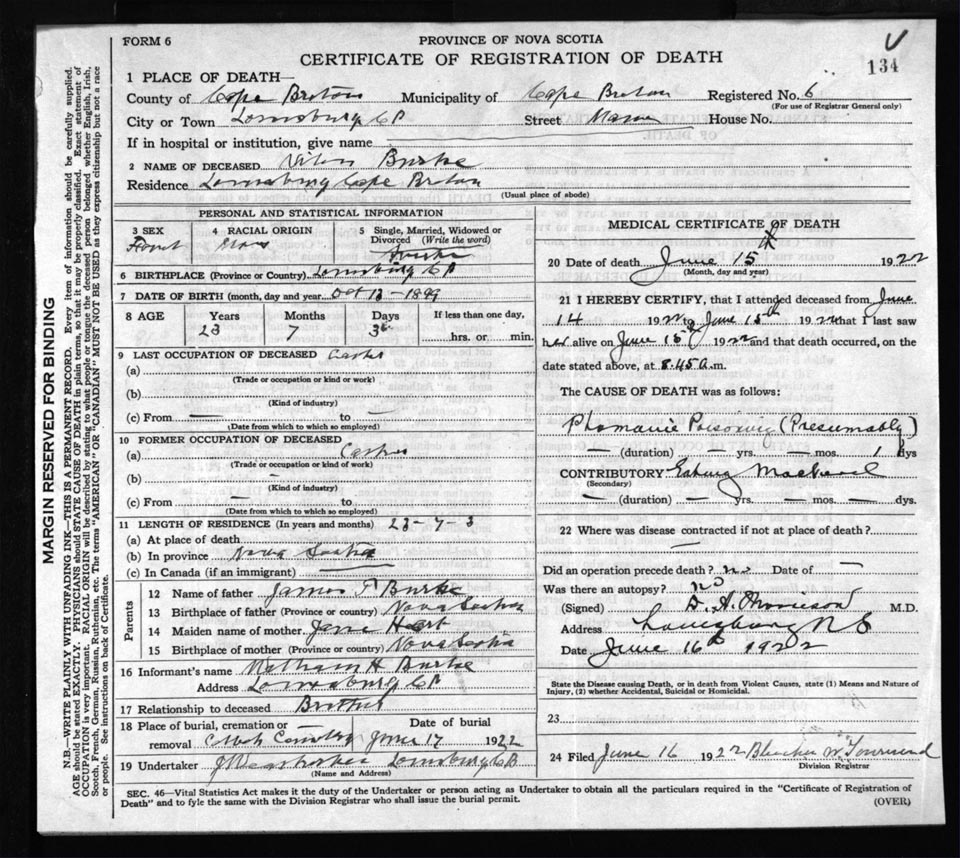 FORM 6
PROVINCE OF NOVA SCOTIA
CERTIFICATE OF REGISTRATION OF DEATH
134
1 PLACE OF DEATH—
County of Cape Breton Municipality of Cape Breton Registered No. 6
(For use of Registrar General only)
City or Town Louisburg C B Street House No.
If in hospital or institution, give name
2 NAME OF DECEASED Burke
Residence Louisburg Cape Breton
(Usual place of abode)
PERSONAL AND STATISTICAL INFORMATION
3 SEX 4 RACIAL ORIGIN 5 Single, Married, Widowed or Divorced (Write the word)
6 BIRTHPLACE (Province or Country) Louisburg C B
7 DATE OF BIRTH (month, day and year) Oct 13 - 1899
8 AGE Years Months Days If less than one day,
23 7 3 hrs. or min.
9 LAST OCCUPATION OF DECEASED
(a)
(Trade or occupation or kind of work)
(b)
(Kind of industry)
(c) From — to —
(Date from which to which so employed)
10 FORMER OCCUPATION OF DECEASED
(a)
(Trade or occupation or kind of work)
(b) —
(Kind of industry)
(c) From — to
(Date from which to which so employed)
11 LENGTH OF RESIDENCE (In years and months) 23 - 7 - 3
(a) At place of death
(b) In province Nova Scotia
(c) In Canada (if an immigrant)
Parents
12 Name of father James T Burke
13 Birthplace of father (Province or country) Nova Scotia
14 Maiden name of mother Jane
15 Birthplace of mother (Province or country) Nova Scotia
16 Informant's name H Burke
Address Louisburg C B
17 Relationship to deceased Brother
18 Place of burial, cremation or removal Date of burial
June 17 1922
19 Undertaker Louisburg C B
(Name and Address)
MEDICAL CERTIFICATE OF DEATH
20 Date of death June 15th 1922
(Month, day and year)
21 I HEREBY CERTIFY, that I attended deceased from June
14 1922 to June 15th 1922 that I last saw
her alive on June 15th 1922 and that death occurred, on the
date stated above, at 8.45 a.m.
The CAUSE OF DEATH was as follows:
Ptomaine Poisoning (Presumably)
— (duration) — yrs. — mos. 1 dys
CONTRIBUTORY Eating Mackerel
(Secondary)
— (duration) — yrs. — mos. — dys.
22 Where was disease contracted if not at place of death?
—
Did an operation precede death? no Date of —
Was there an autopsy? no
(Signed) M.D.
Address Louisburg N S
Date June 16th 1922
State the Disease causing Death, or in death from Violent Causes, state (1) Means and Nature of Injury, (2) whether Accidental, Suicidal or Homicidal.
23
24 Filed June 16 1922 Townsend
Division Registrar
SEC. 46—Vital Statistics Act makes it the duty of the Undertaker or person acting as Undertaker to obtain all the particulars required in the "Certificate of Registration of
Death" and to fyle the same with the Division Registrar who shall issue the burial permit.
(OVER)
MARGIN RESERVED FOR BINDING
N.B.—WRITE PLAINLY WITH UNFADING INK—THIS IS A PERMANENT RECORD. Every item of information should be carefully supplied.
AGE should be stated EXACTLY. PHYSICIANS should STATE CAUSE OF DEATH in plain terms, so that it may be properly classified. Exact statement of
OCCUPATION is very important. RACIAL ORIGIN will be described by stating to what people or tongue the deceased person belonged whether English, Irish,
Scotch, French, German, Russian, Ruthenian, etc. The terms "AMERICAN" OR "CANADIAN" MUST NOT BE USED as they express citizenship but not a race
or people. See instructions on back of Certificate.